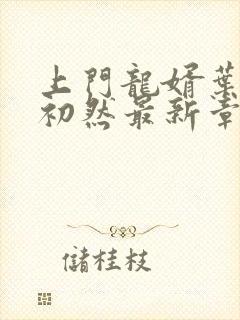 上門龍婿葉
初然最新章
儲桂枝